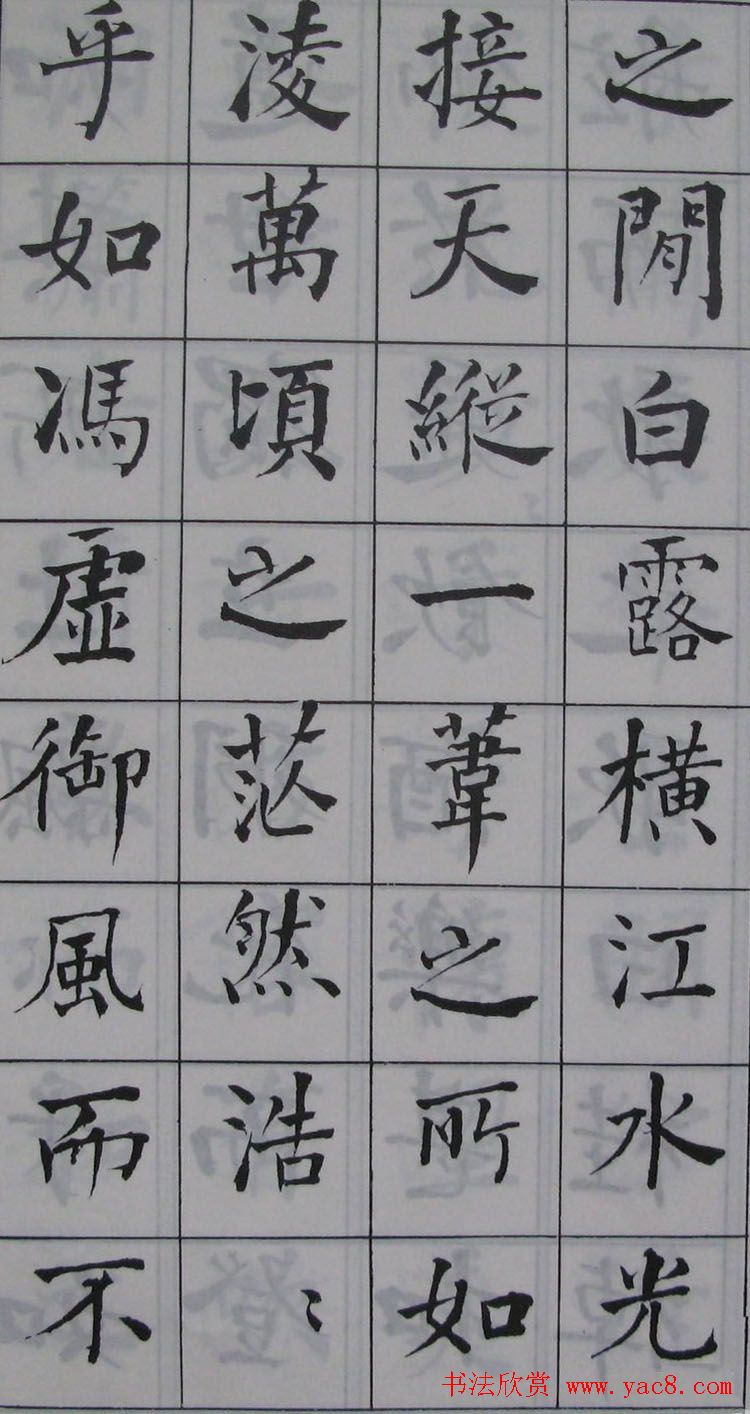 之閒白露橫江水光
接天縱一葦之所如
淩萬頃之茫然浩〻
乎如馮虛御風而不
书法欣赏 www.yac8.com